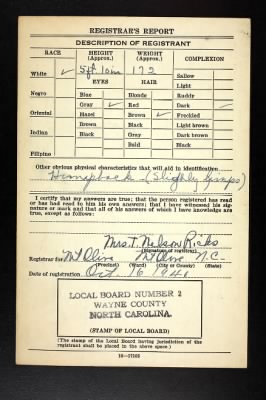 REGISTRAR'S REPORT
DESCRIPTION OF REGISTRANT
RACE HEIGHT (Approx.) WEIGHT (Approx.) COMPLEXION
White ✓ 5 ft 10 in 172 Sallow
EYES HAIR Light
Negro Blue Blonde Ruddy
Gray ✓ Red Dark ✓
Oriental Hazel Brown ✓ Freckled
Brown Black Light brown
Indian Black Gray Dark brown
Bald Black
Filipino
Other obvious physical characteristics that will aid in identification
Humpback (Slightly
I certify that my answers are true; that the person registered has read or has had read to him his own answers; that I have witnessed his signature or mark and that all of his answers of which I have knowledge are true, except as follows:
Mrs. T. Nelson Ricks
(Signature of registrar)
Registrar for Mt Olive Mt Olive N.C.
(Precinct) (Ward) (City or County) (State)
Date of registration Oct. 16 1940
LOCAL BOARD NUMBER 2
WAYNE COUNTY
NORTH CAROLINA.
(STAMP OF LOCAL BOARD)
(The stamp of the Local Board having jurisdiction of the registrant shall be placed in the above space.)
16—17105